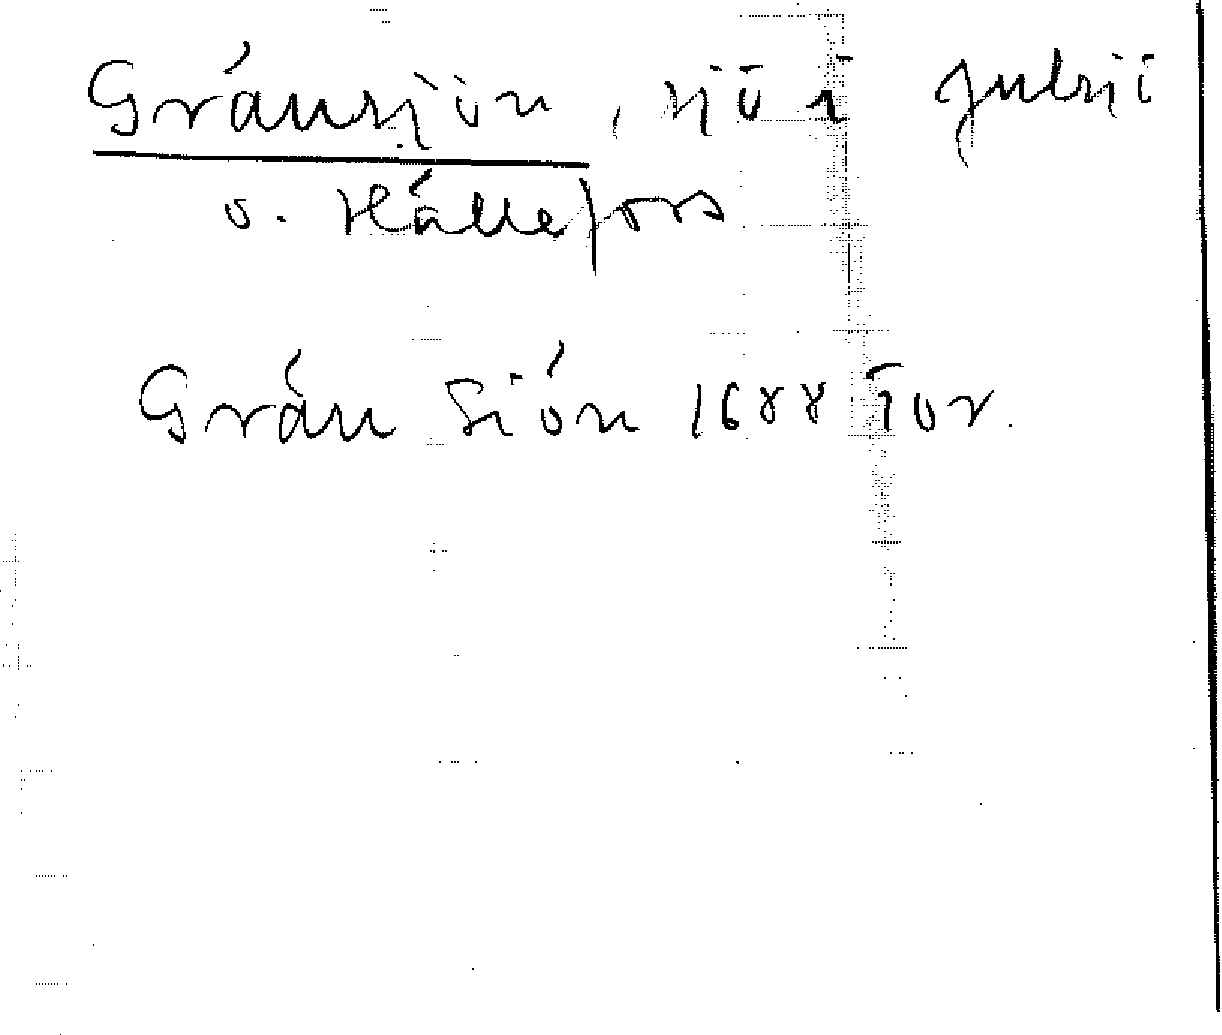 Gränsjön, sjö i Gulsjö
o. Hällefors
Grän Siön 1688 Jor.